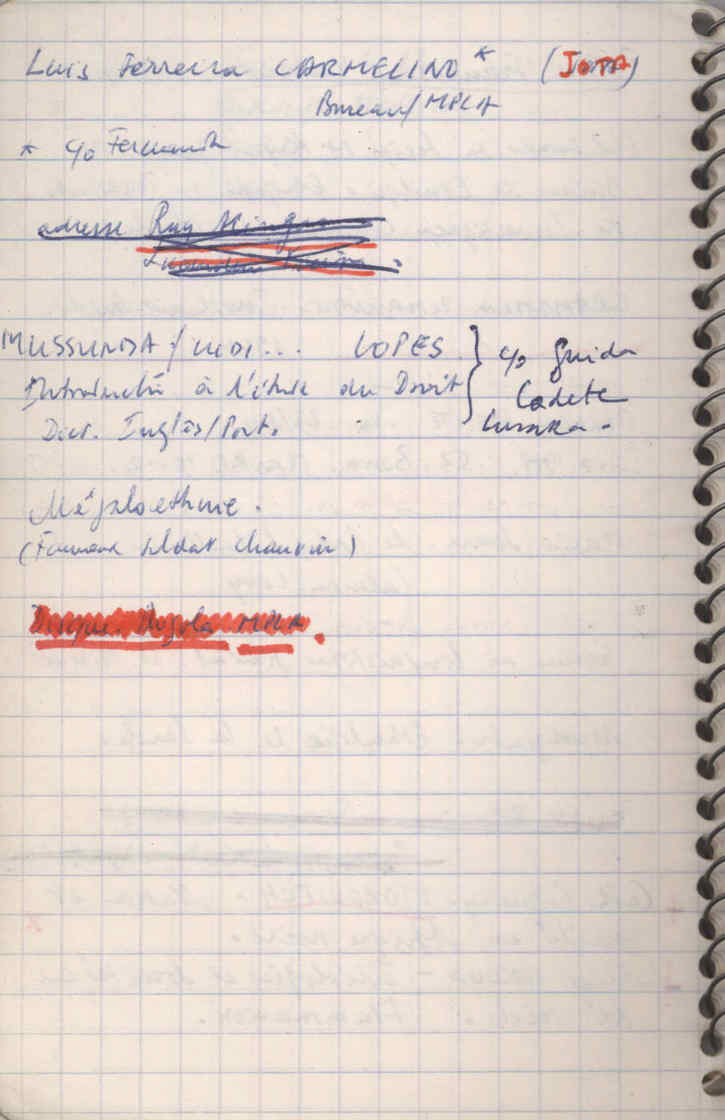 Luis Ferreira CARMELINO* (JOTA)
Bureau/MPLA
* c/o Fernanda
adresse Ruy Mingas
MUSSUNDA / UIDI... LOPES
Introduction à l'étude du Droit
Dict. Inglês/Port.
c/o Guida
Cadete
Lusaka.
Mégaloethnie.
(Fameux soldat Chauvin)
Disque Angola MPLA.